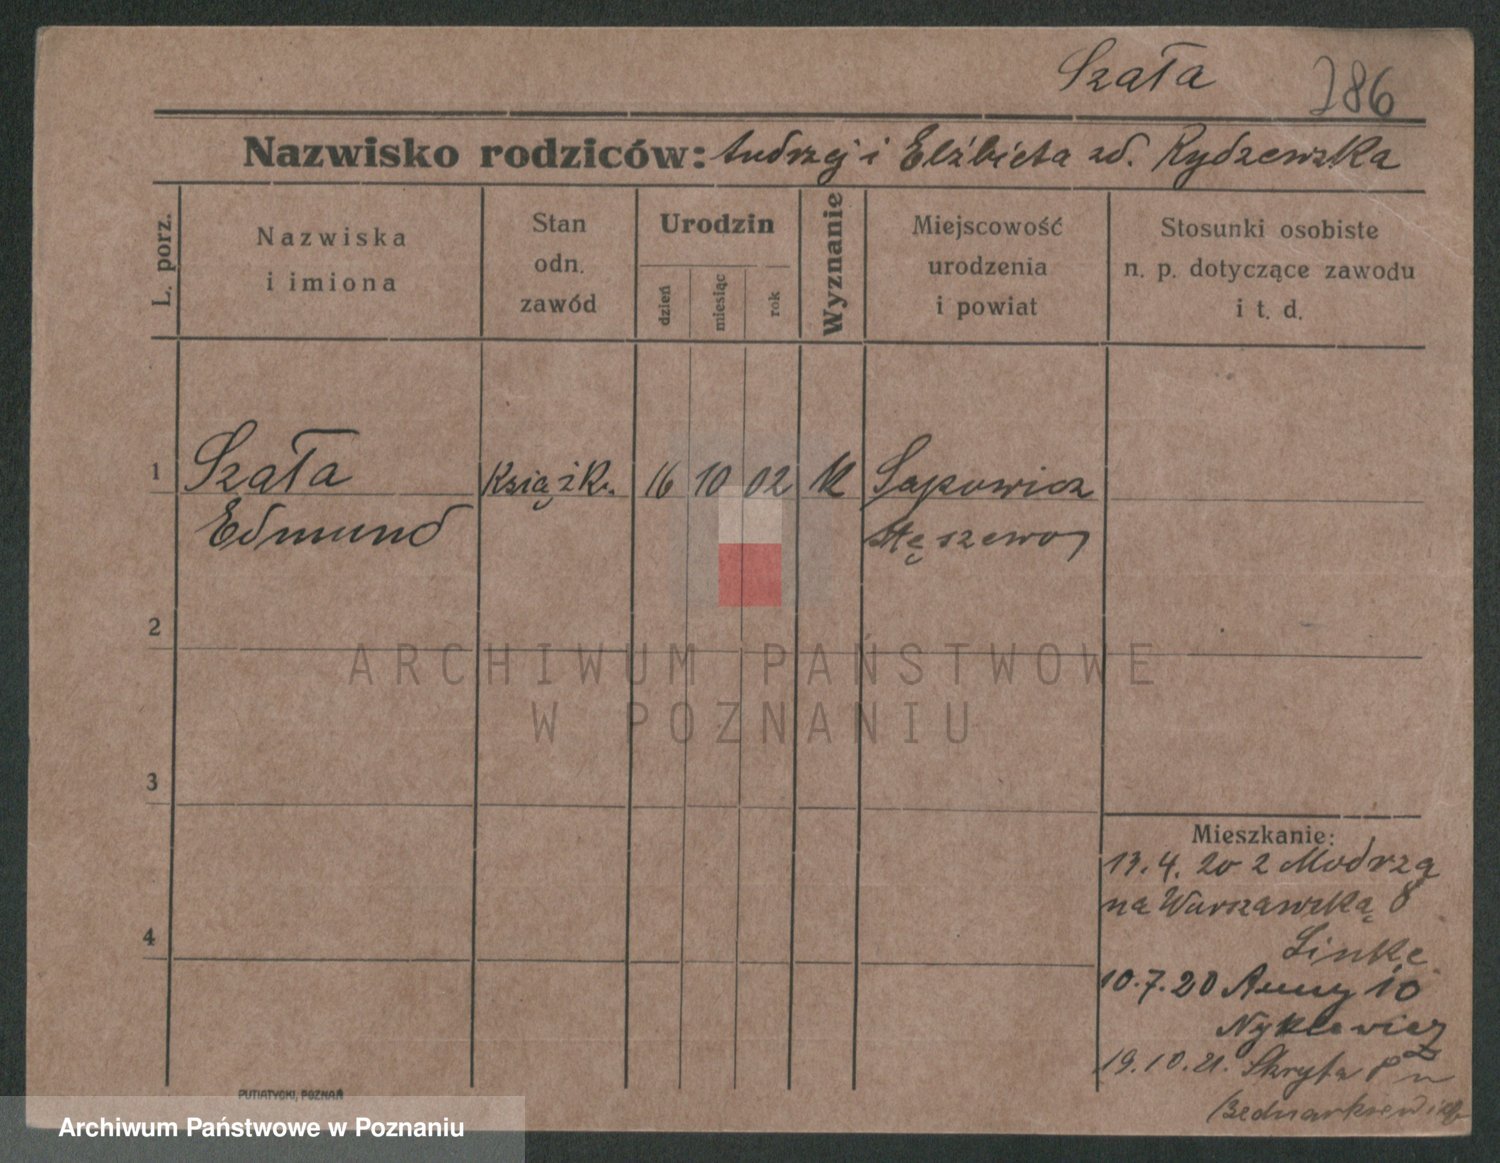 Szała 286
Nazwisko rodziców: Andrzej i Elżbieta zd. Rydzewska
L. porz.
Nazwiska
i imiona
Stan
odn.
zawód
Urodzin
dzień
miesiąc
rok
Wyznanie
Miejscowość
urodzenia
i powiat
Stosunki osobiste
n. p. dotyczące zawodu
i t. d.
1 Szała Książk. 16 10 02 K Sapowicz
Edmund Stęszewo
2
ARCHIWUM PAŃSTWOWE
W POZNANIU
3
Mieszkanie:
13.4.20 z Modrzą
na Warszawską 8
Linke
4
10.7.20 10
Nyklewicz
19.10.21. Skryta 8
Bednarkiewicz
PUTIATYCKI, POZNAŃ
Archiwum Państwowe w Poznaniu